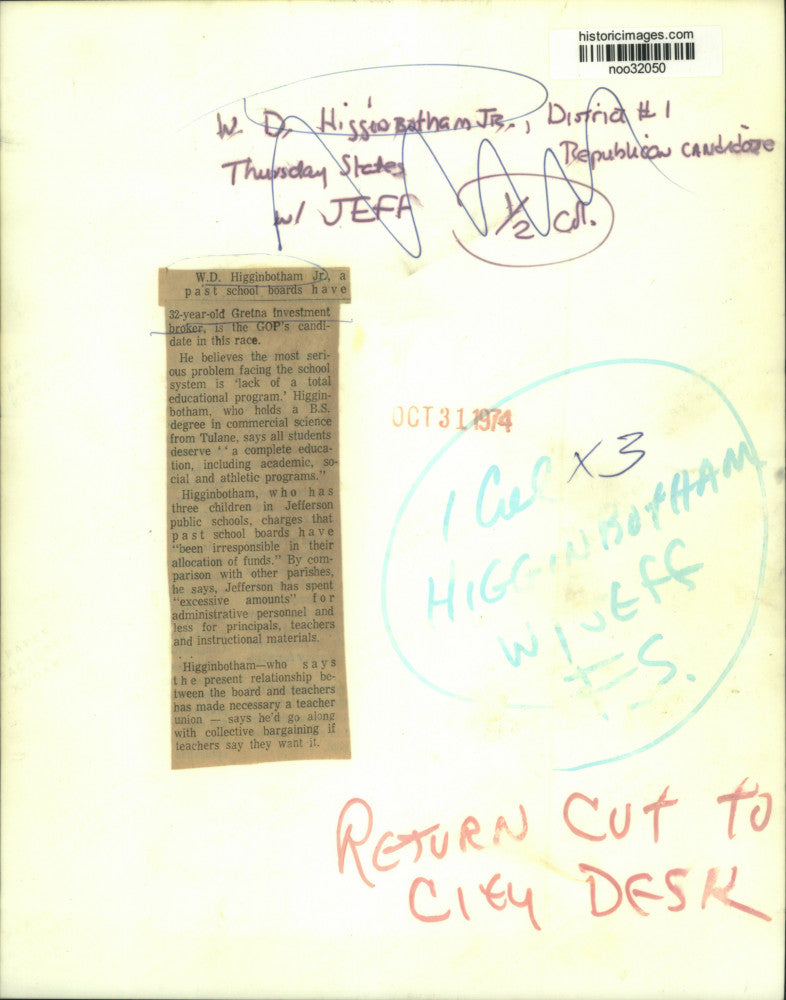 historicimages.com
noo32050
W. D. Higginbotham JR., District #1
Thursday States Republican CANdidate
w/ JEFF 1/2 Col.
W.D. Higginbotham Jr., a
past school boards have
32-year-old Gretna investment
broker, is the GOP's candi-
date in this race.
He believes the most seri-
ous problem facing the school
system is 'lack of a total
educational program.' Higgin-
botham, who holds a B.S.
degree in commercial science
from Tulane, says all students
deserve ''a complete educa-
tion, including academic, so-
cial and athletic programs."
Higginbotham, who has
three children in Jefferson
public schools, charges that
past school boards have
"been irresponsible in their
allocation of funds." By com-
parison with other parishes,
he says, Jefferson has spent
"excessive amounts" for
administrative personnel and
less for principals, teachers
and instructional materials.
. .
Higginbotham—who says
the present relationship be-
tween the board and teachers
has made necessary a teacher
union — says he'd go along
with collective bargaining if
teachers say they want it.
OCT 31 1974
1 Col x3
HIGGINBOTHAM
W/JEFF
F.S.
RETURN CUT TO
CITY DESK